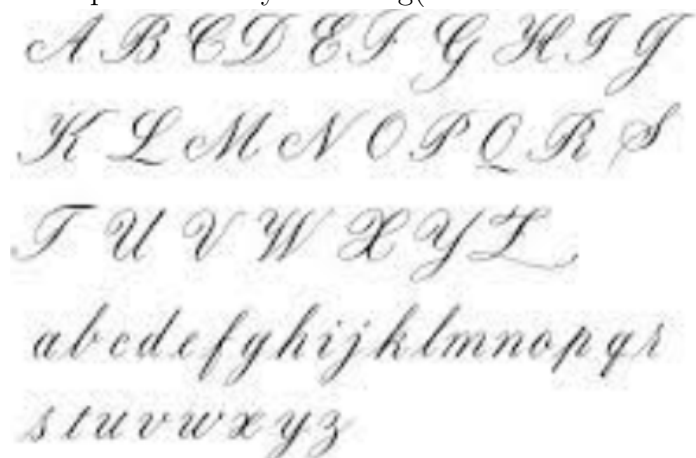 A B C D E F G H I J
K L M N O P Q R S
T U V W X Y Z
a b c d e f g h i j k l m n o p q r
s t u v w x y z